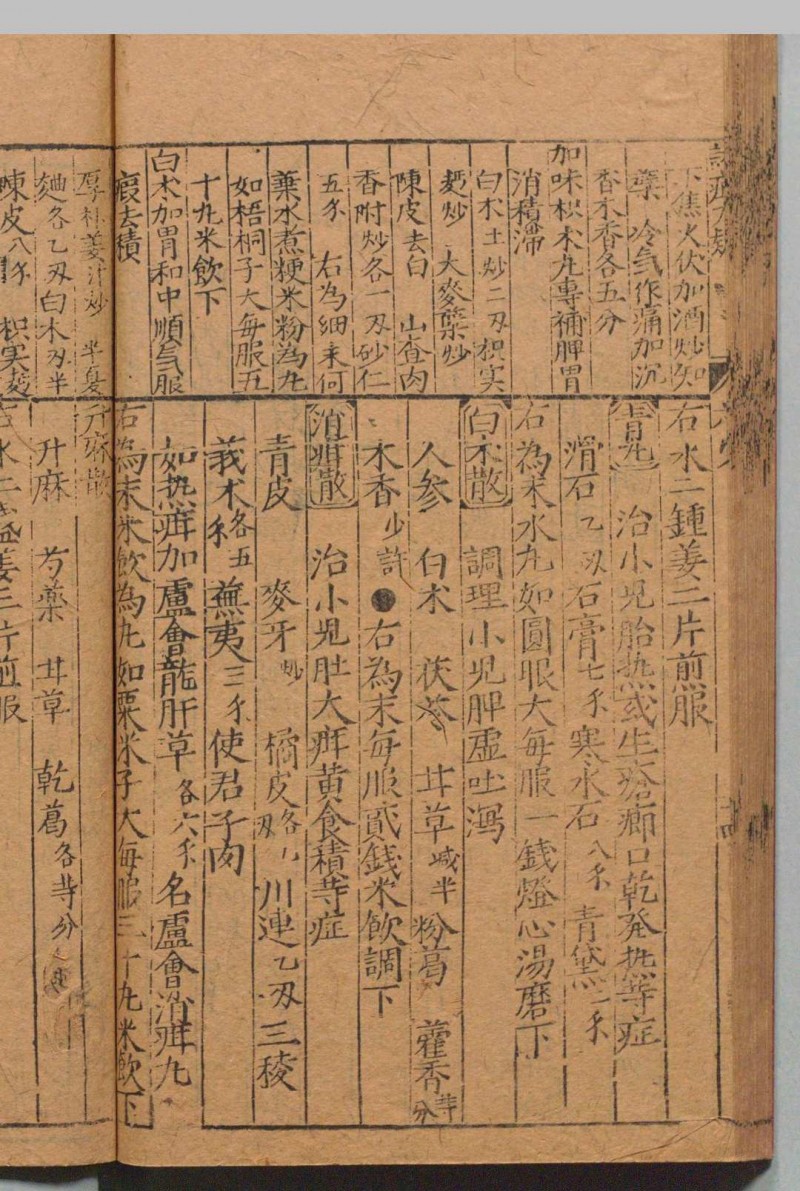 下焦火伏加酒炒知
蘗 冷気作痛加沉
香木香各五分
加味枳木丸專補脾胃
消積滯
白木土炒二刄枳实
麪炒 大麥蘗炒
陳皮去白 山查肉
香附炒各一刄砂仁
五千 右為細末何
葉水煮粳米粉為丸
如梧桐子大每服五
十丸米飲下
白木加胃和中順氣服
痕去積
厚朴姜汁炒 半夏
麯各乙刄白木刄半
陳皮八千 枳实麩
右水二鍾姜三片煎服
青丸 治小児胎𤍠或生瘡癤口乾発𤍠等症
滑石乙刄石膏七千寒水石八千青黛二千
右為末水丸如圓眼大每服一錢燈心湯磨下
白木散 調理小児脾虛吐瀉
人参 白木 茯苓 甘草減半 粉葛 藿香等分
木香少許●右為末每服貳錢米飲調下
消疳散 治小児肚大疳黄食積等症
青皮 麥牙炒 橘皮各八刄川連乙刄三稜
莪木各五千蕪夷三千使君子肉
如𤍠疳加盧會龍肝草各六千名盧會消疳丸
右為末米飲為丸如粟米子大每服三十丸米飲下
升麻散
升麻 芍藥 甘草 乾葛各等分
右水二盞姜三片煎服